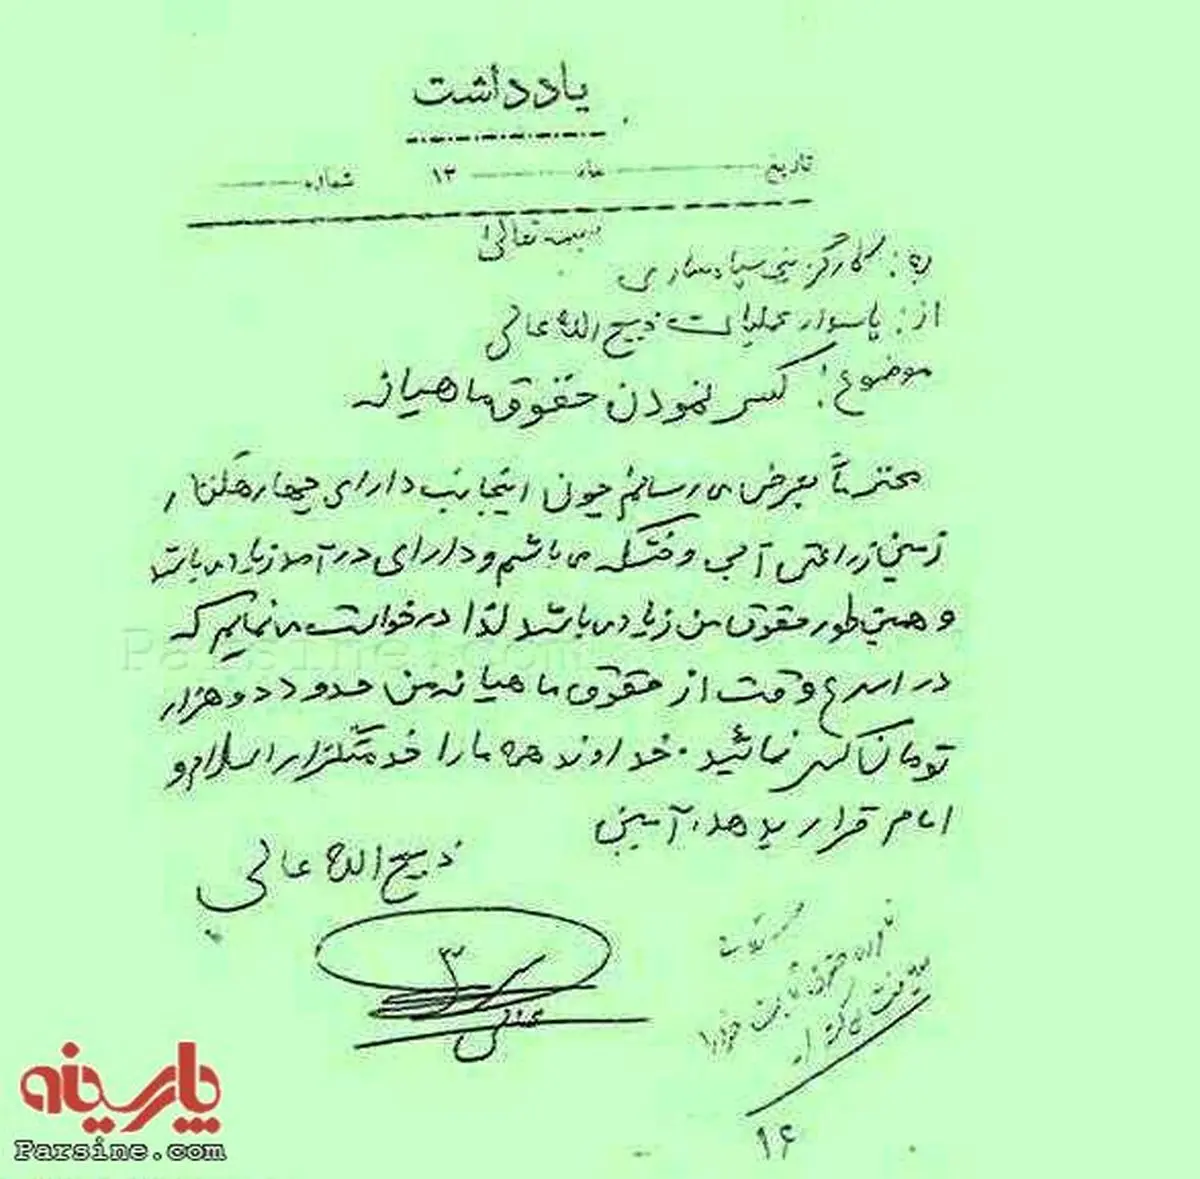 یادداشت
تاریخ ماه ۱۳ شماره
بسمه تعالی
به: کارگزینی سپاه ساری
از: پاسدار عملیات ذبیح الله عالی
موضوع: کسر نمودن حقوق ماهیانه
محترماً بعرض می رسانم چون اینجانب دارای چهار هکتار
زمین زراعتی آبی و خشکه می باشم و دارای درآمد زیاد می باشد
و همین طور حقوق من زیاد می باشد لذا درخواست می نمایم که
در اسرع وقت از حقوق ماهیانه من حدود دو هزار
تومان کسر نمائید. خداوند همه ما را خدمتگزار اسلام و
امام قرار بدهد، آمین
ذبیح الله عالی
۱۶
پارسینه
Parsine.com
Parsine.com